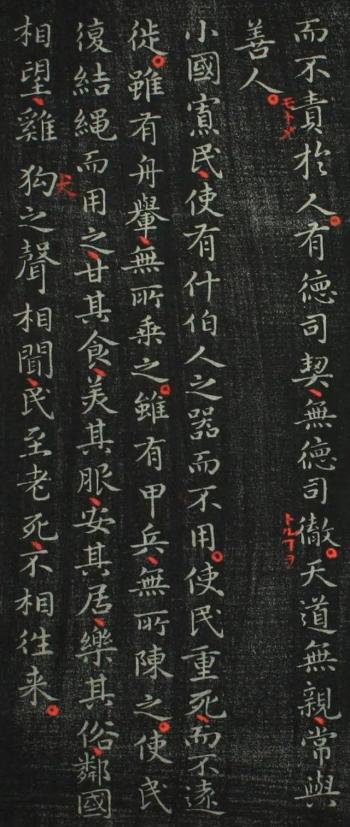 而不責於人有德司契無德司徹天道無親常與
善人
小國寡民使有什伯人之器而不用使民重死而不遠
徙雖有舟轝無所乗之雖有甲兵無所陳之使民
復結繩而用之甘其食美其服安其居樂其俗鄰國
相望雞狗之聲相聞民至老死不相往来
モトメ
トルコヲ
犬